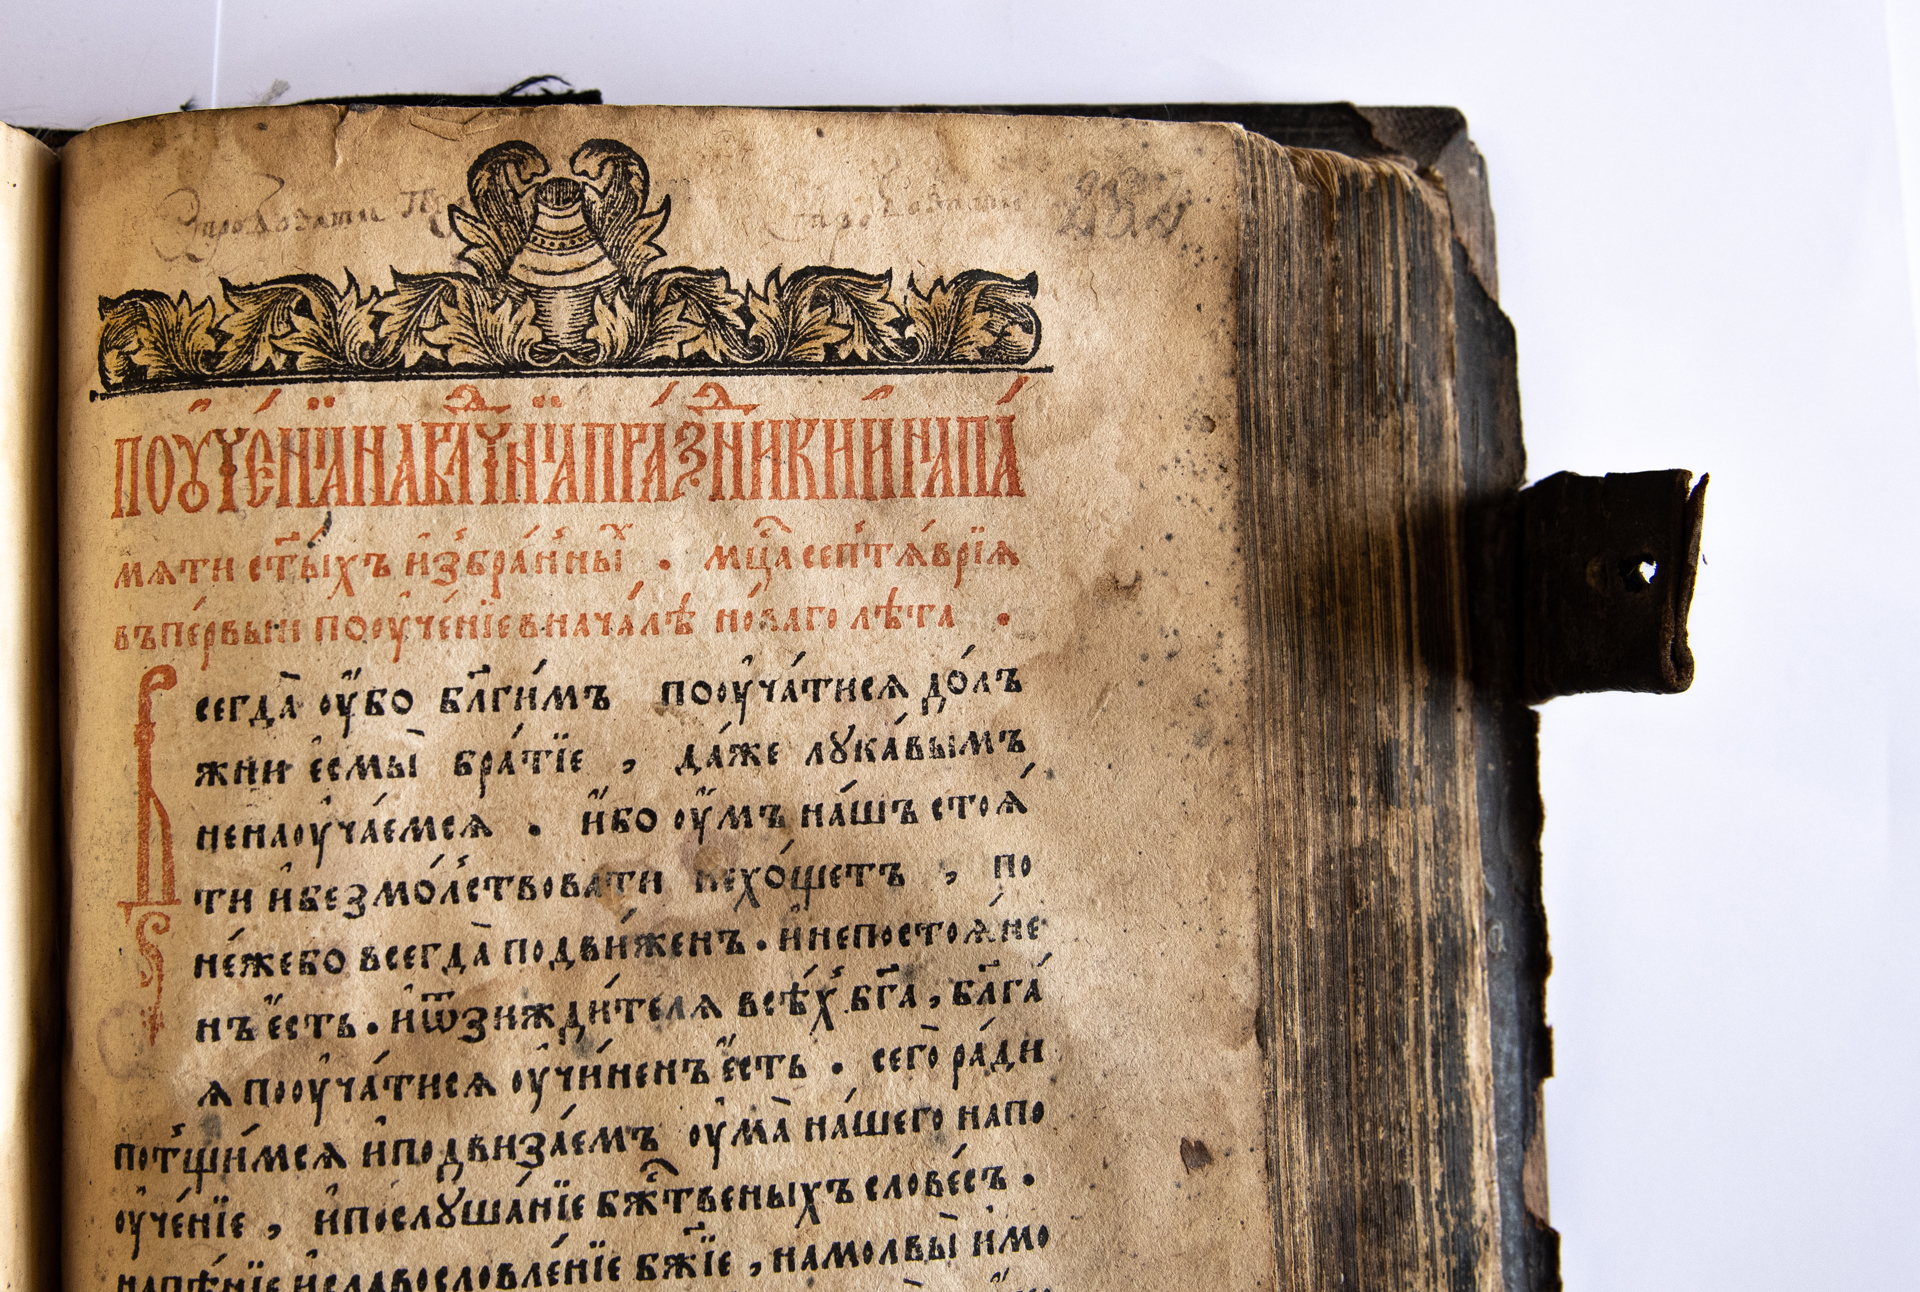 Поꙋче́нїѧ на влⷣчнїѧ пра́зⷣники и҆ на па́
мѧти ст҃ы́хъ и҆збра́нныⷯ . мцⷭ҇а септѧ́врїѧ
въпе́рвыи поѹче́нїе внача́лѣ но́ваго лѣ́та .
Всегда̀ ѹ҆́бо бл҃ги́мъ поѹча́тисѧ до́лъ
жни е҆смы̀ бра́тїе , да́же лꙋка́вымъ
ненаѹча́емсѧ . и҆́бо ѹ҆́мъ на́шъ стоѧ́
ти и҆безмо́лⷭствовати нехо́щетъ , по
не́жебо всегда̀ подви́женъ . и҆непостоѧ́не
нъ є҆́сть . и҆ѿзижди́телѧ всѣ́хⷭ бг҃а , бл҃га́
ѧ поѹча́тисѧ ѹ҆чи́ненъ є҆́сть . сего̀ ра́ди
потщи́мсѧ и҆подвиза́емъ ѹ҆ма̀ на́шего напо
ѹ҆че́нїе , и҆послꙋша́нїе бж҃тⷭвеныхъ слове́съ .
напѣ́нїе и҆славословле́нїе бж҃їе , намолвы̀ и҆мо